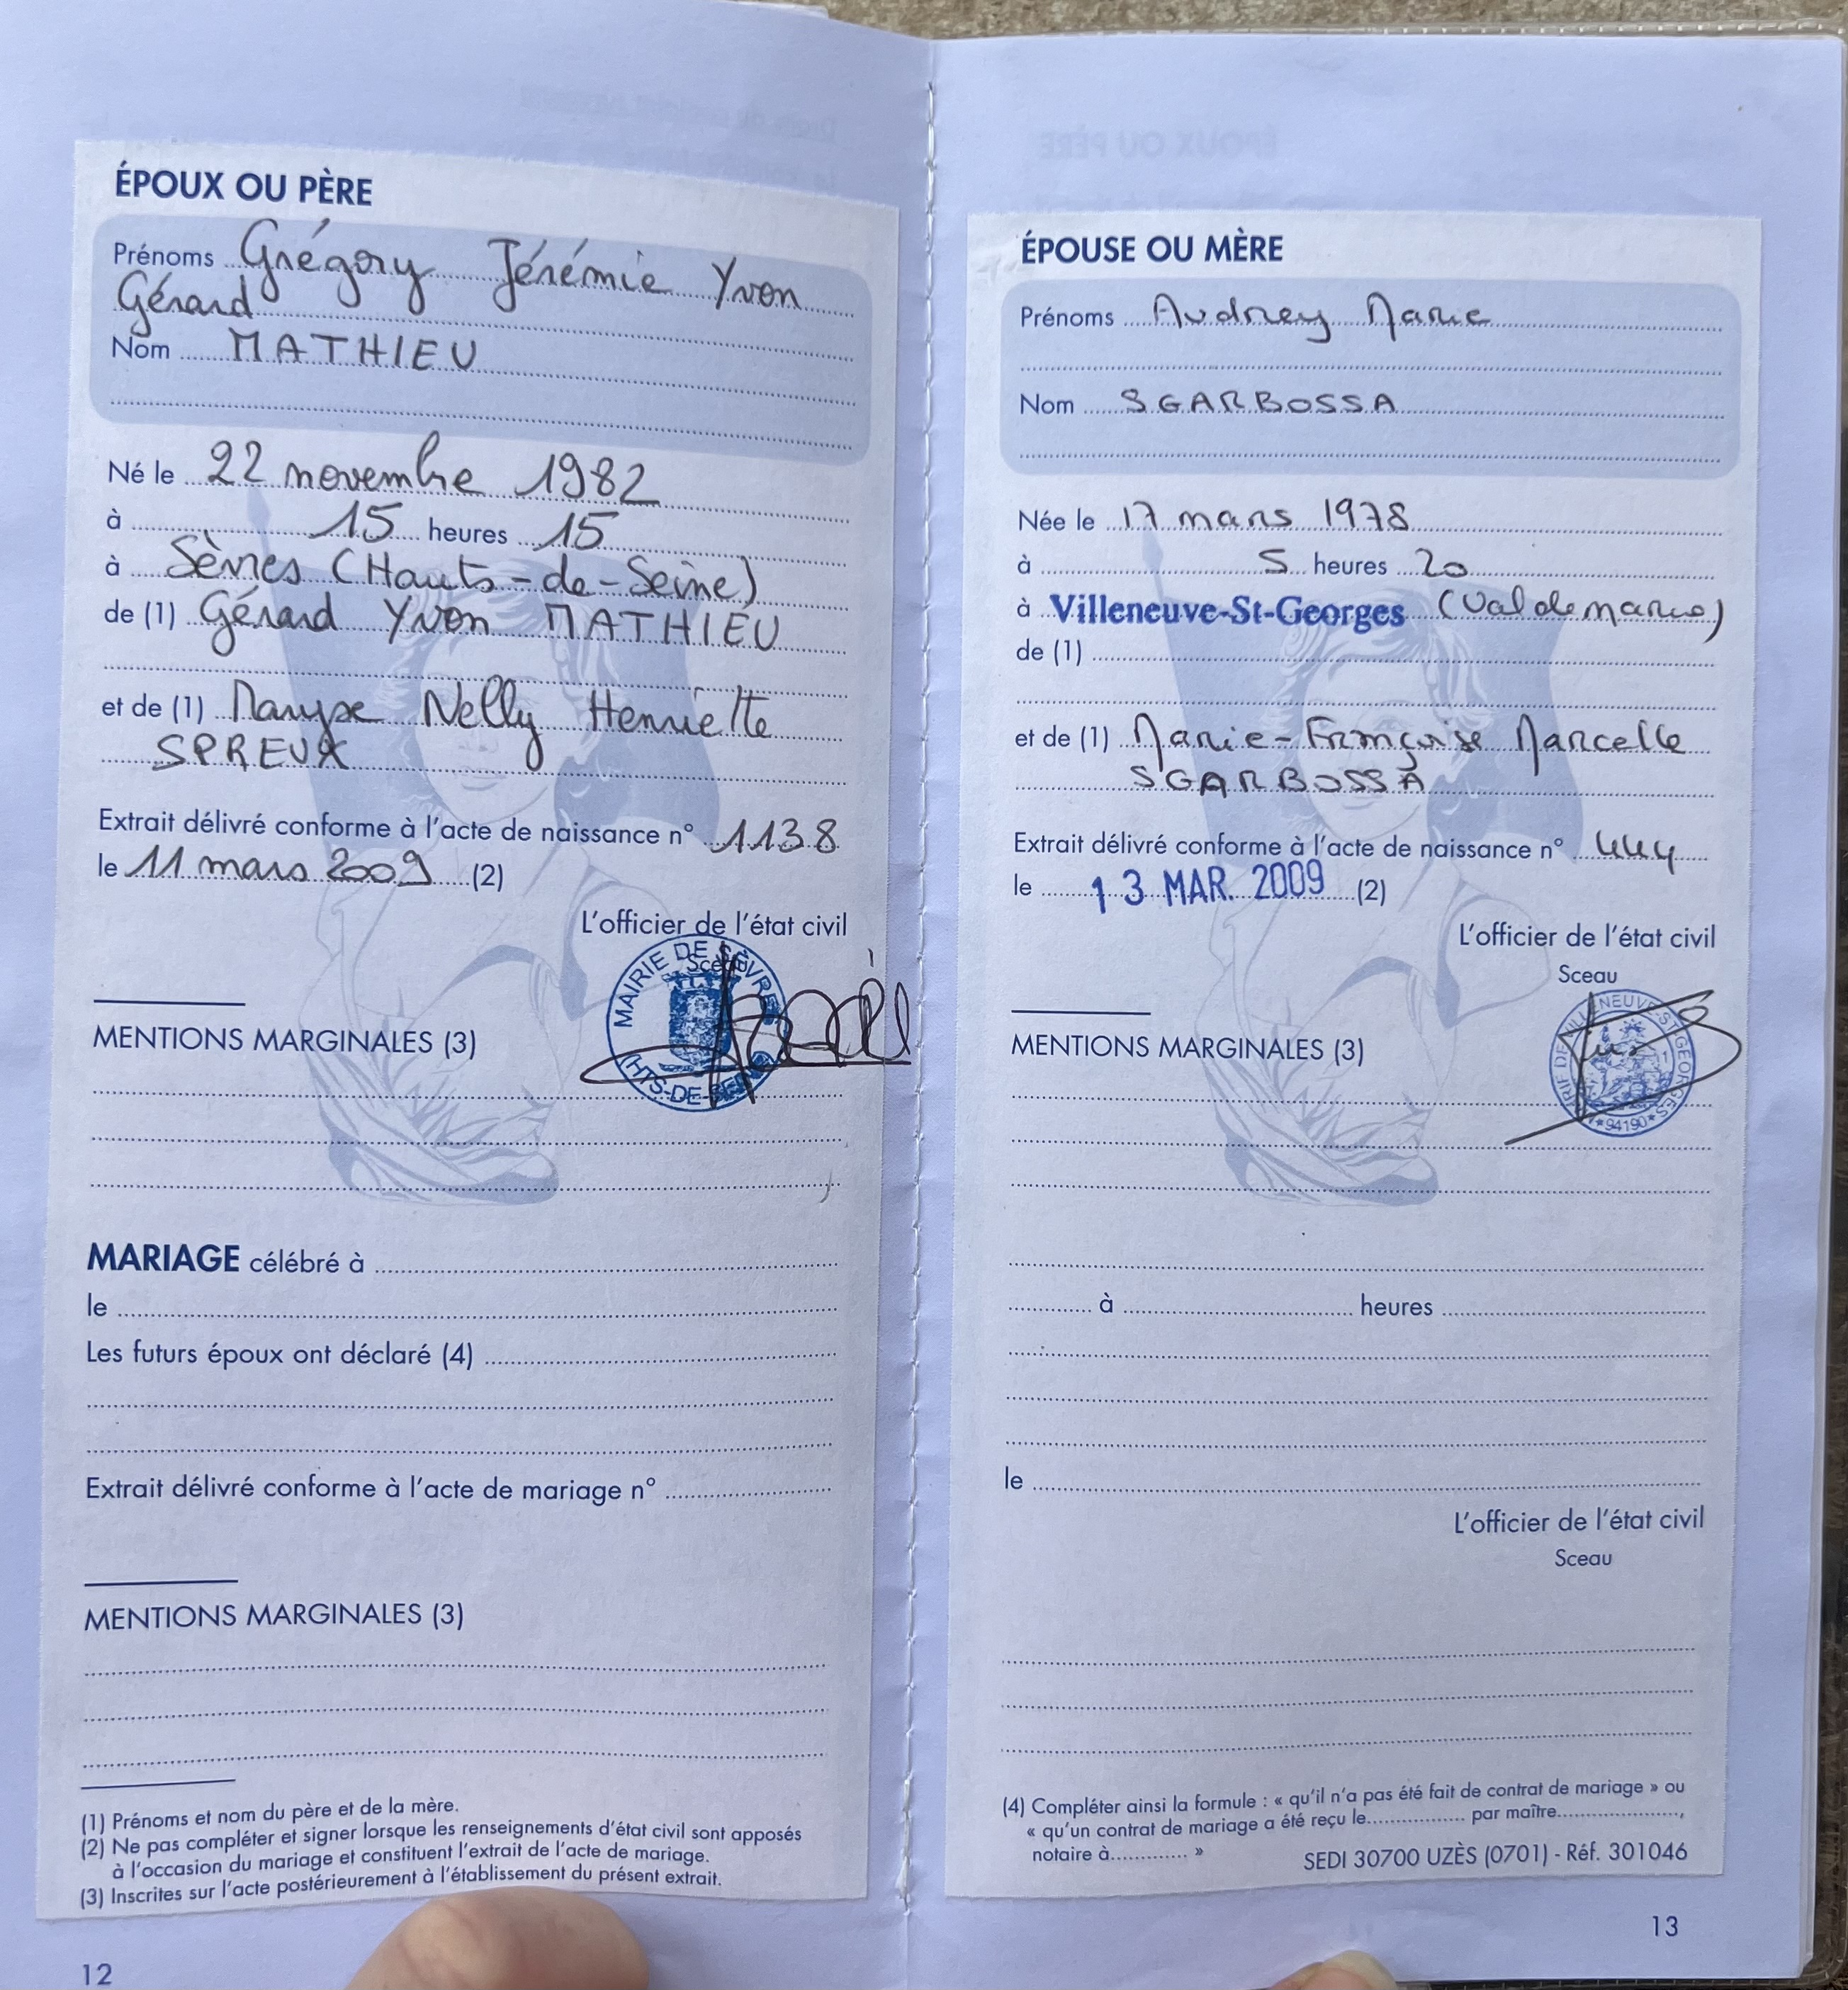 ÉPOUX OU PÈRE
Prénoms Grégory Jérémie Yvon
Gérard
Nom MATHIEU
Né le 22 novembre 1982
à 15 heures 15
à Sèvres (Hauts-de-Seine)
de (1) Gérard Yvon MATHIEU
et de (1) Maryse Nelly Henriette
SPREUX
Extrait délivré conforme à l'acte de naissance n° 1138
le 11 mars 2009 (2)
L'officier de l'état civil
Sceau
MAIRIE DE SÈVRES
HTS-DE-SEINE
MENTIONS MARGINALES (3)
MARIAGE célébré à
le
Les futurs époux ont déclaré (4)
Extrait délivré conforme à l'acte de mariage n°
MENTIONS MARGINALES (3)
(1) Prénoms et nom du père et de la mère.
(2) Ne pas compléter et signer lorsque les renseignements d'état civil sont apposés
à l'occasion du mariage et constituent l'extrait de l'acte de mariage.
(3) Inscrites sur l'acte postérieurement à l'établissement du présent extrait.
12
ÉPOUSE OU MÈRE
Prénoms Audrey Marie
Nom SGARBOSSA
Née le 17 mars 1978
à 5 heures 20
à Villeneuve-St-Georges (Val de marne)
de (1)
et de (1) Marie-Françoise Marcelle
SGARBOSSA
Extrait délivré conforme à l'acte de naissance n° 444
le 13 MAR. 2009 (2)
L'officier de l'état civil
Sceau
MAIRIE DE VILLENEUVE-ST-GEORGES
*94190*
MENTIONS MARGINALES (3)
à heures
le
L'officier de l'état civil
Sceau
(4) Compléter ainsi la formule : « qu'il n'a pas été fait de contrat de mariage » ou
« qu'un contrat de mariage a été reçu le................. par maître......................,
notaire à............. »
SEDI 30700 UZÈS (0701) - Réf. 301046
13